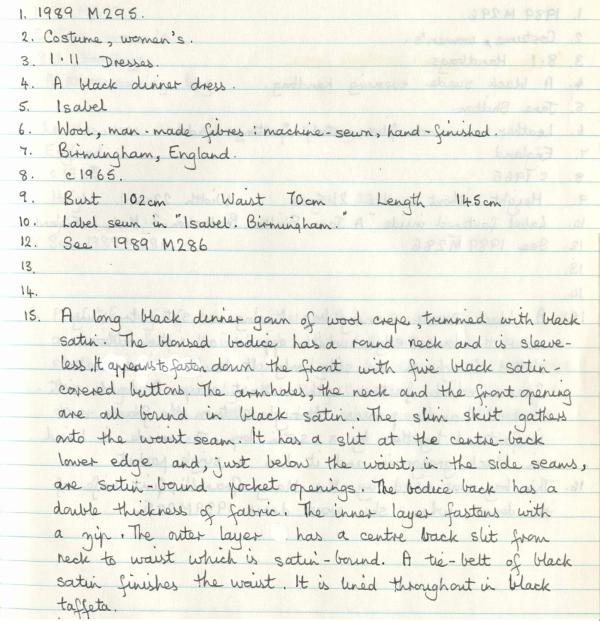 1. 1989 M295.
2. Costume, women's.
3. 1.11 Dresses.
4. A black dinner dress.
5. Isabel
6. Wool, man-made fibres: machine-sewn, hand-finished.
7. Birmingham, England.
8. c1965.
9. Bust 102cm Waist 70cm Length 145cm
10. Label sewn in "Isabel. Birmingham."
12. See 1989 M286
13.
14.
15. A long black dinner gown of wool crepe, trimmed with black
satin. The bloused bodice has a round neck and is sleeve-
less. It appears to fasten down the front with five black satin-
covered buttons. The armholes, the neck and the front opening
are all bound in black satin. The slim skirt gathers
onto the waist seam. It has a slit at the centre-back
lower edge and, just below the waist, in the side seams,
are satin-bound pocket openings. The bodice back has a
double thickness of fabric. The inner layer fastens with
a zip. The outer layer has a centre back slit from
neck to waist which is satin-bound. A tie-belt of black
satin finishes the waist. It is lined throughout in black
taffeta.